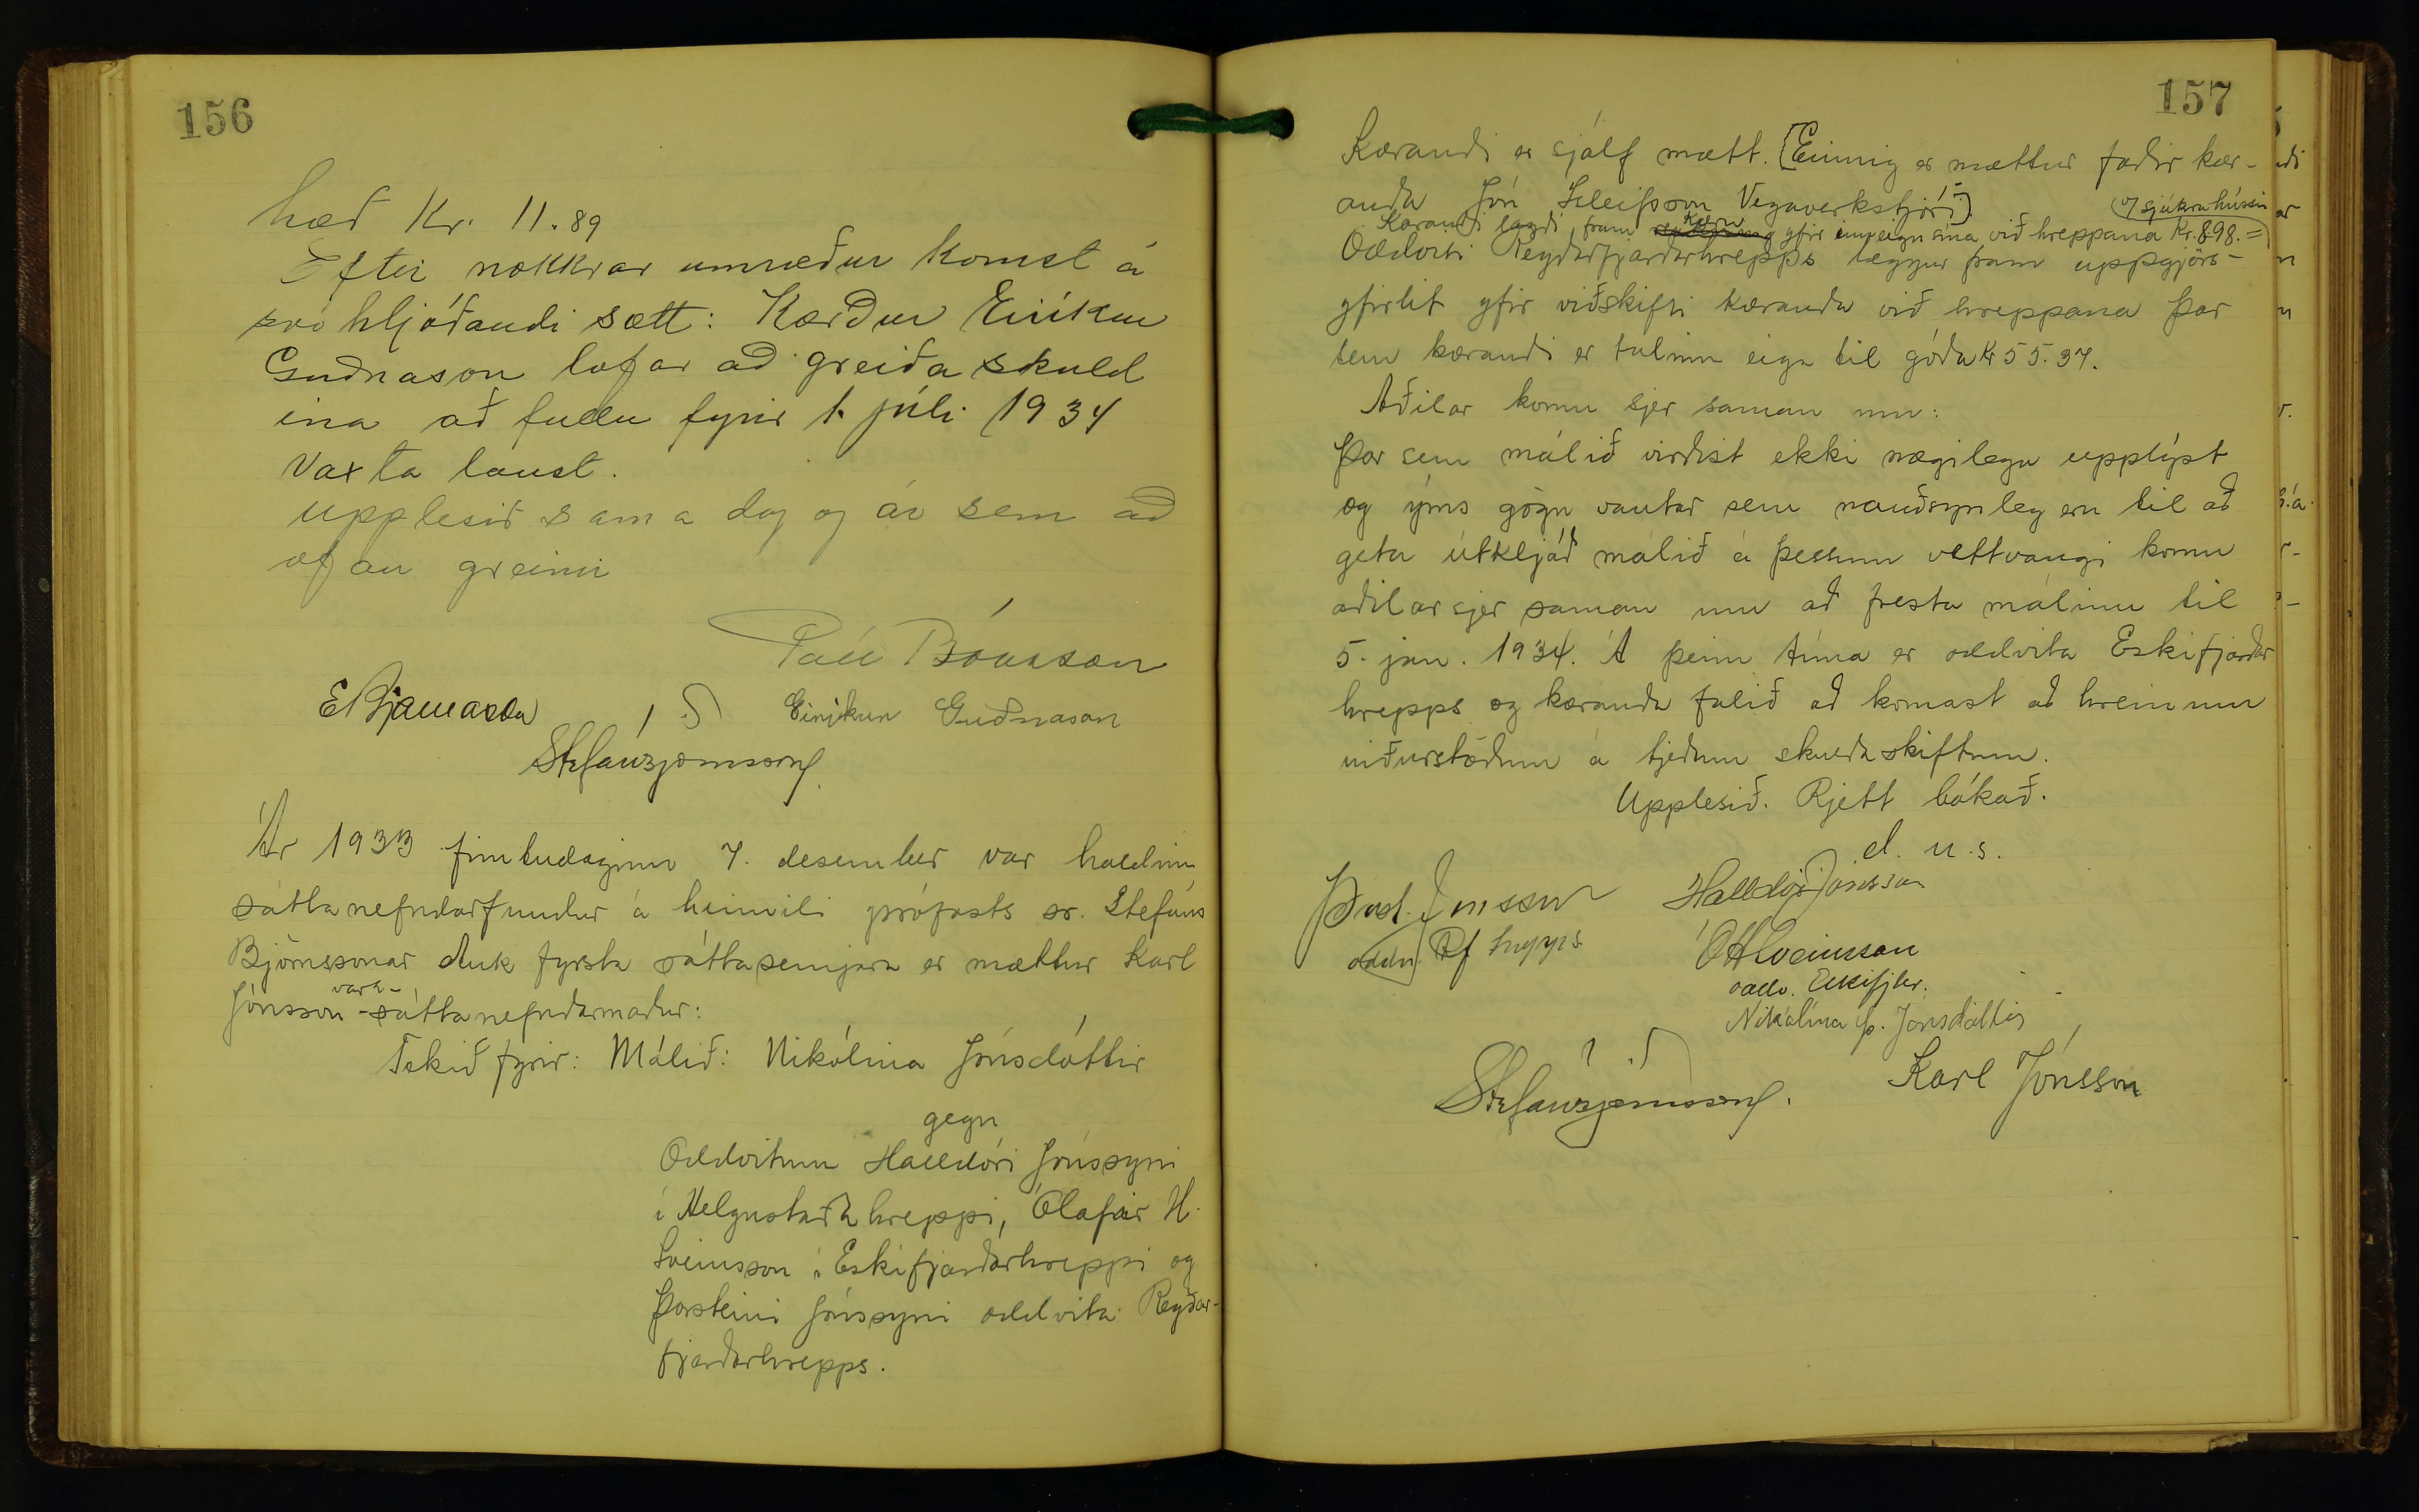 156
hæð Kr. 11.89
Eftir nokkrar umræður komst á
svo hljóðandi sætt: Kærður Eiríkur
Guðnason lofar að greiða skuld
ina að fullu fyrir 1. júli 1934
Vaxta laust.
Upplesið sama dag og ár sem að
ofan greinir
Páll Bóasson
E Bjarnason
Eiríkur Guðnason
Stefán Björnsson
Ár 1933 fimtudaginn 7. desember var haldinn
sáttanefndarfundur á heimili prófasts sr. Stefáns
Björnssonar Auk fyrsta sáttasemjara er mættur Karl
Jónsson vara-sáttanefndarmaður:
Tekið fyrir: Málið: Nikólína Jónsdóttir
gegn
Oddvitum Halldóri Jónssyni
í Helgustaðahreppi, Ólafur H.
Sveinsson í Eskifjarðarhreppi og
Þorsteini Jónssyni oddvita Reyðar-
fjarðarhrepps.
157
Kærandi er sjálf mætt. [Einnig er mættur faðir kær-
anda Jón Ísleifsson Vegaverkstjóri]
(Í sjúkrahússin
Kærandi lagði fram kæru yfir inneign sína við hreppana Kr. 898.=)
Oddviti Reyðarfjarðarhrepps leggur fram uppgjörs-
yfirlit yfir viðskifti kæranda við hreppana þar
sem kærandi er talinn eiga til góða Kr 55.37.
Aðilar komu sjer saman um:
Þar sem málið virðist ekki nægilega upplýst
og ýms gögn vantar sem nauðsynleg eru til að
geta útkljáð málið á þessum vettvangi komu
aðilar sjer saman um að fresta málinu til
5. jan. 1934. Á þeim tíma er oddvita Eskifjarðar
hrepps og kæranda falið að komast að hreinum
niðurstöðum á tjeðum skuldaskiftum.
Upplesið. Rjett bókað.
d. u. s.
Þorst. Jónsson
Halldór Jónsson
oddv. Rf hrepps
Ó H Sveinsson
oddv. Eskifjhr.
Nikólína Þ. Jónsdóttir
Karl Jónsson
Stefán Björnsson.